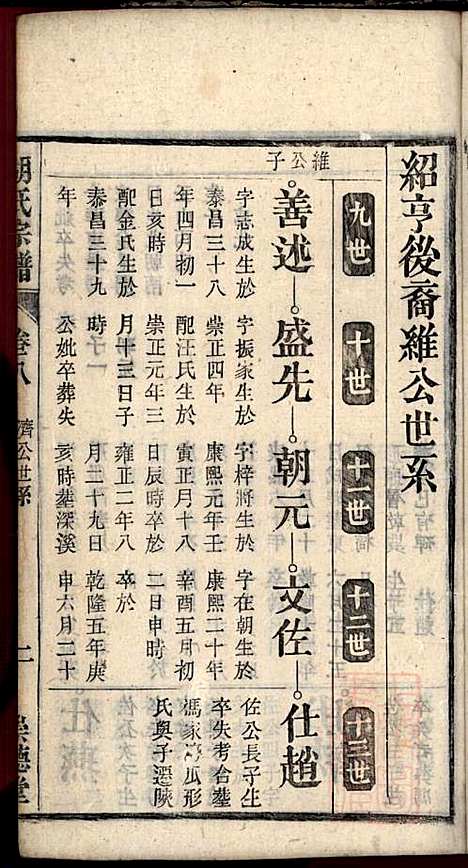 紹亨後裔維公世系
九世
十世
十一世
十二世
十三世
維公子
善述
盛先
朝元
文佐
仕趙
字志成生於
泰昌三十八
年四月初一
日亥時
配金氏生於
泰昌三十九
年
字振家生於
崇正四年
配汪氏生於
崇正元年三
月十三日子
時子一
公妣卒葬失
字梓將生於
康熙元年壬
寅正月十八
日辰時卒於
雍正二年八
月二十九日
亥時塟深溪
字在朝生於
康熙二十年
辛酉五月初
二日申時
卒於
乾隆五年庚
申六月二十
佐公長子生
卒失考合塟
馮家灣瓜形
氏與子遷陝
胡氏宗譜
卷八
濟公世系
二
崇德堂